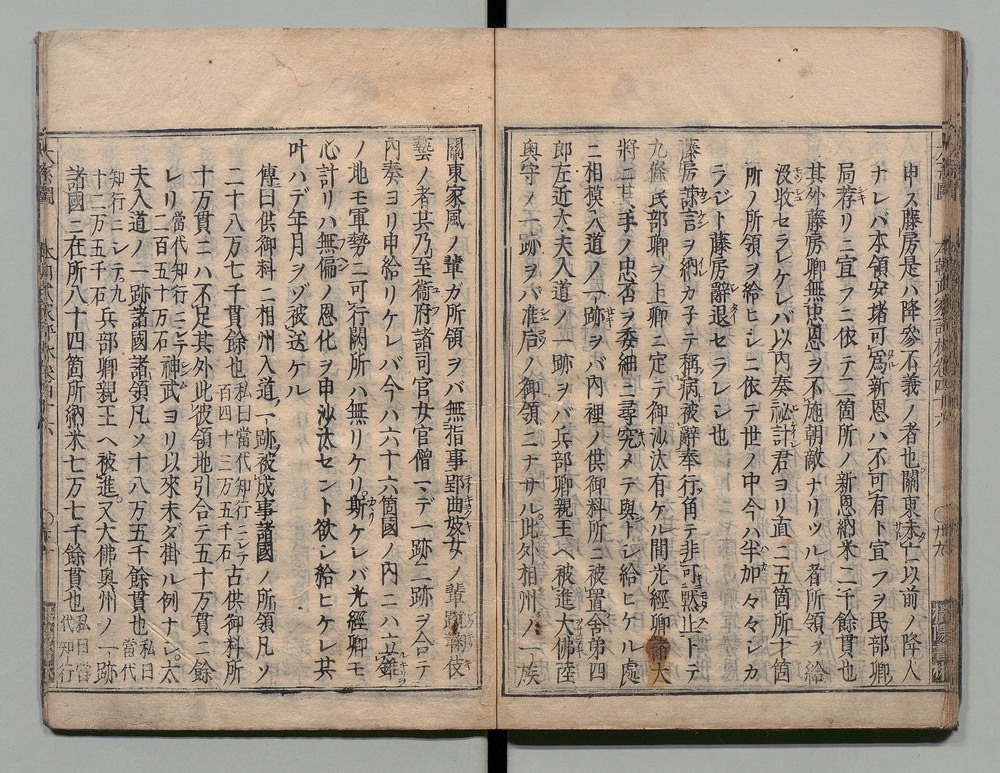 申ス藤房是ハ降參不義ノ者也關東未亡以前ノ降人
ナレバ本領安堵可爲新恩ハ不可有ト宣フヲ民部卿
局荐リニ宣フニ依テ二箇所ノ新恩納米二千餘貫也
其外藤房卿無忠恩ヲ不施朝敵ナリツル者所領ヲ給
沒收セラレケレバ以內奏祕計君ヨリ直ニ五箇所十箇
所ノ所領ヲ給ヒシニ依テ世ノ中今ハ半加々々シカ
ラジト藤房辭退セラレシ也
藤房諫言ヲ納カ子テ稱病被辭奉行角テ非可默止トテ
九條民部卿ヲ上卿ニ定テ御沙汰有ケル間光經卿
將ニ其手ノ忠否ヲ委細ニ尋究メテ與ントシ給ヒケル處
ニ相摸入道ノ一跡ヲバ內裡ノ供御料所ニ被置舍弟四
郎左近大夫入道ノ一跡ヲバ兵部卿親王ヘ被進大佛陸
奧守ノ一跡ヲバ准后ノ御領ニナサル此外相州ノ一族
關東家風ノ輩ガ所領ヲバ無指事郢曲妓女ノ輩蹴鞠伎
藝ノ者共乃至衞府諸司官女官僧マデ一跡二跡ヲ合テ
內奏ヨリ申給リケレバ今ハ六十六箇國ノ內ニハ立錐
ノ地モ軍勢ニ可行闕所ハ無リケリ斯ケレバ光經卿モ
心計リハ無偏ノ恩化ヲ申沙汰セント欲シ給ヒケレ共
叶ハデ年月ヲゾ被送ケル
傳曰供御料ニ相州入道ノ一跡被成事諸國ノ所領凡ソ
二十八万七千貫餘也私曰當代知行ニシテ百四十三万五千石古供御料所
十万貫ニハ不足其外此彼領地引合テ五十万貫ニ餘
レリ當代知行ニシテ二百五十万石神武ヨリ以來未ダ掛ル例ナシ太
夫入道ノ一跡諸國諸領凡ソ十八万五千餘貫也私曰當代
知行ニシテ九十二万五千石兵部卿親王ヘ被進又大佛奧州ノ一跡
諸國ニ在所八十四箇所納米七万七千餘貫也私曰當代知行